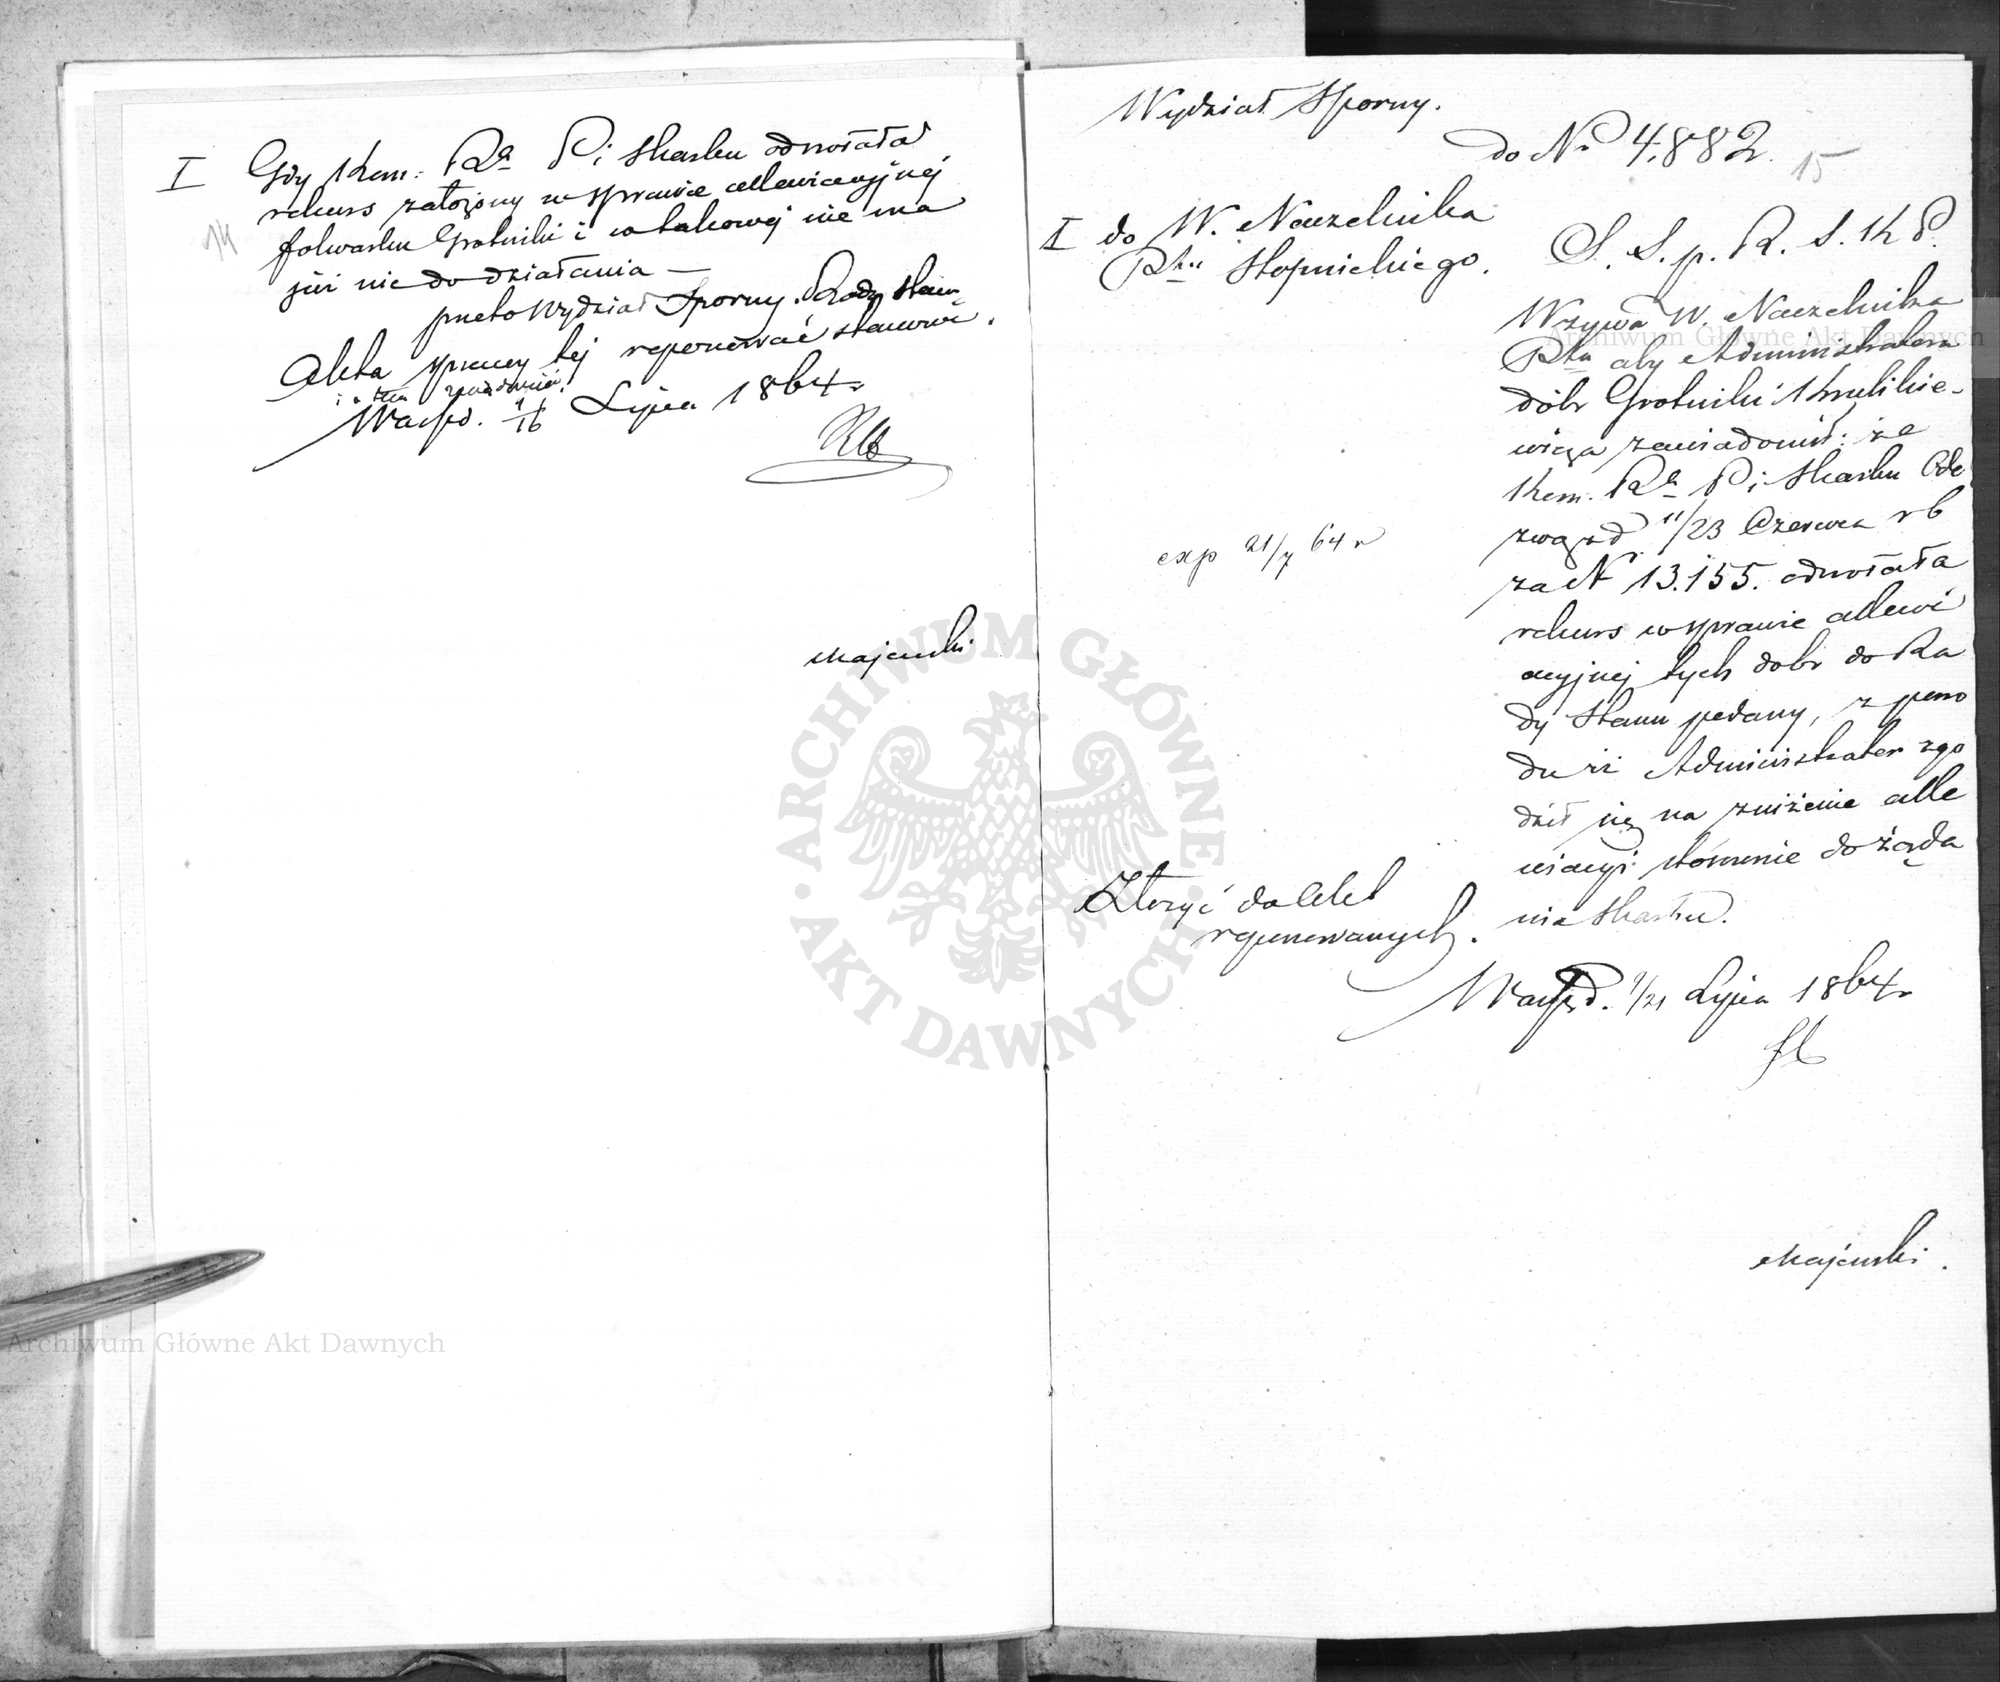 I Gdy Kom: Ra P. i Skarbu odwołała
rekurs założony w sprawie allewiacyjnej
14
folwarku Grotniki i w takowej nie ma
już nic do działania —
przeto Wydział Sporny Rady Stanu
Akta sprawy tej reponować stanowi.
Warsz. d. 4/16 Lipca 1864 r
Majewski
Wydział Sporny.
do Nr 4.882.
15
I do W. Naczelnika
Ptu Stopnickiego.
S. S. p. R. S. K P.
Wzywa W. Naczelnika
Ptu aby Administratora
dóbr Grotniki Krulikie-
wicza zawiadomił: że
Kom. Ra P. i Skarbu Ode
zwą z d. 11/23 Czerwca r b
za N 13.155. odwołała
rekurs w sprawie allewi
acyjnej tych dobr do Ra
dy Stanu podany, z powo
du iż Administrator zgo
dził się na zniżenie alle
wiacyi stósownie do żąda
nia Skarbu.
exp 21/7 64 r
Złożyć do Akt
reponowanych.
Warsz. d. 9/21 Lipca 1864 r
Majewski.
Archiwum Główne Akt Dawnych
Archiwum Główne Akt Dawnych
ARCHIWUM GŁÓWNE · AKT DAWNYCH ·